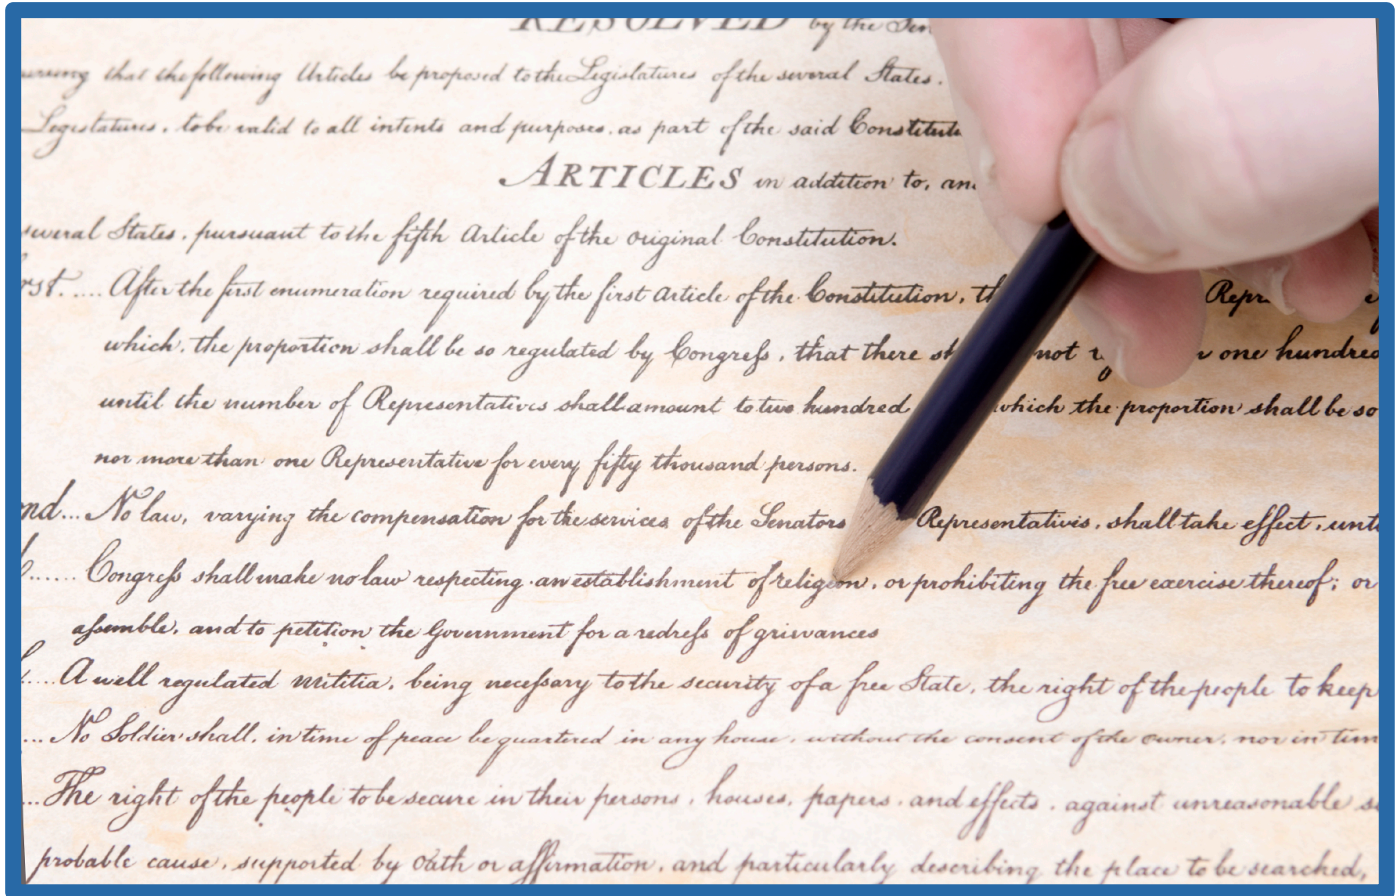 RESOLVED by the Sen
that the following Articles be proposed to the Legislatures of the several States.
Legislatures, to be valid to all intents and purposes, as part of the said Constitut
ARTICLES in addition to, an
several States, pursuant to the fifth Article of the original Constitution.
After the first enumeration required by the first Article of the Constitution, th Repr
which, the proportion shall be so regulated by Congress, that there sh not one hundred
until the number of Representatives shall amount to two hundred which the proportion shall be so
nor more than one Representative for every fifty thousand persons.
No law, varying the compensation for the services of the Senators Representatives, shall take effect, unt
Congress shall make no law respecting an establishment of religion, or prohibiting the free exercise thereof; or
assemble, and to petition the Government for a redress of grievances
A well regulated militia, being necessary to the security of a free State, the right of the people to keep
No Soldier shall, in time of peace be quartered in any house, without the consent of the owner, nor in tim
The right of the people to be secure in their persons, houses, papers, and effects, against unreasonable s
probable cause, supported by Oath or affirmation, and particularly describing the place to be searched,